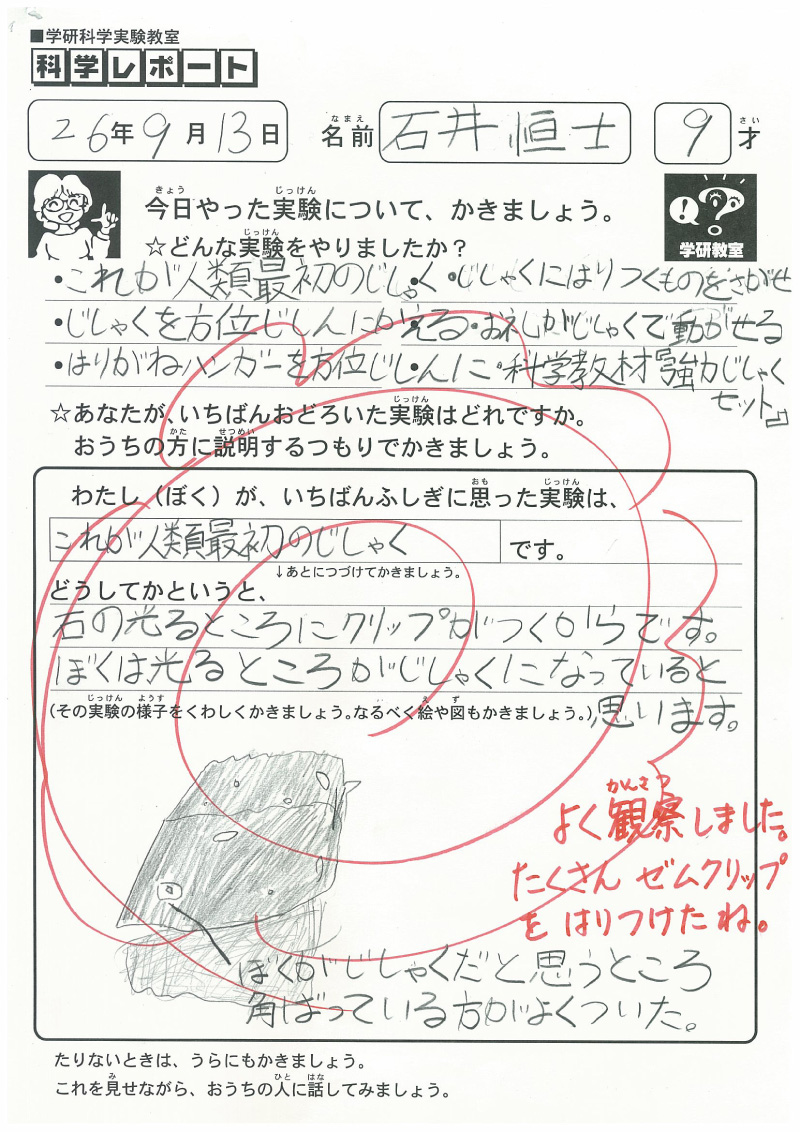 ■学研科学実験教室
科学レポート
26年9月13日 名前 石井 恒士 9才
なまえ さい
きょう じっけん
今日やった実験について、かきましょう。
じっけん
☆どんな実験をやりましたか?
学研教室
・これが人類最初のじしゃく・じしゃくにはりつくものをさがせ
・じしゃくを方位じしんにかえる・お札がじしゃくで動かせる
・はりがねハンガーを方位じしんに・科学教材『強力じしゃく
セット』
じっけん
☆あなたが、いちばんおどろいた実験はどれですか。
かた せつめい
おうちの方に説明するつもりでかきましょう。
おも じっけん
わたし(ぼく)が、いちばんふしぎに思った実験は、
これが人類最初のじしゃく です。
↓あとにつづけてかきましょう。
どうしてかというと、
右の光るところにクリップがつくからです。
ぼくは光るところがじしゃくになっていると
じっけん ようす え ず
(その実験の様子をくわしくかきましょう。なるべく絵や図もかきましょう。)思います。
かんさつ
よく観察しました。
たくさん ゼムクリップ
を はりつけたね。
ぼくがじしゃくだと思うところ
角ばっている方がよくついた。
たりないときは、うらにもかきましょう。
み ひと はな
これを見せながら、おうちの人に話してみましょう。